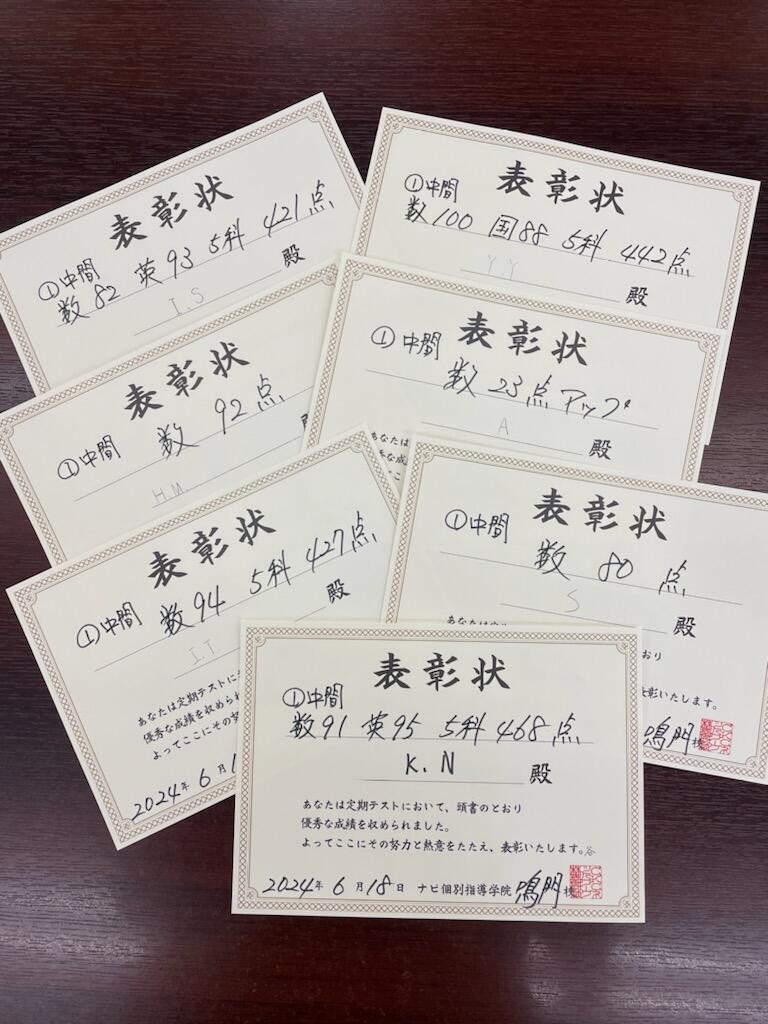 表彰状
①中間
数82 英93 5科 421点
I.S
殿
表彰状
①中間
数100 国88 5科 442点
Y.Y
殿
表彰状
①中間 数 92点
H.M.
表彰状
①中間
数 23点アップ
A
殿
あなたは
表彰状
①中間 数94 5科 427点
I.T
殿
あなたは定期テストに
優秀な成績を収められ
よってここにその努力
2024年 6月1
表彰状
①中間
数 80 点
S
殿
おり
表彰いたします。
鳴門校
表彰状
①中間
数91 英95 5科 468点
K.N
殿
あなたは定期テストにおいて、頭書のとおり
優秀な成績を収められました。
よってここにその努力と熱意をたたえ、表彰いたします。
2024年 6月18日 ナビ個別指導学院 鳴門校